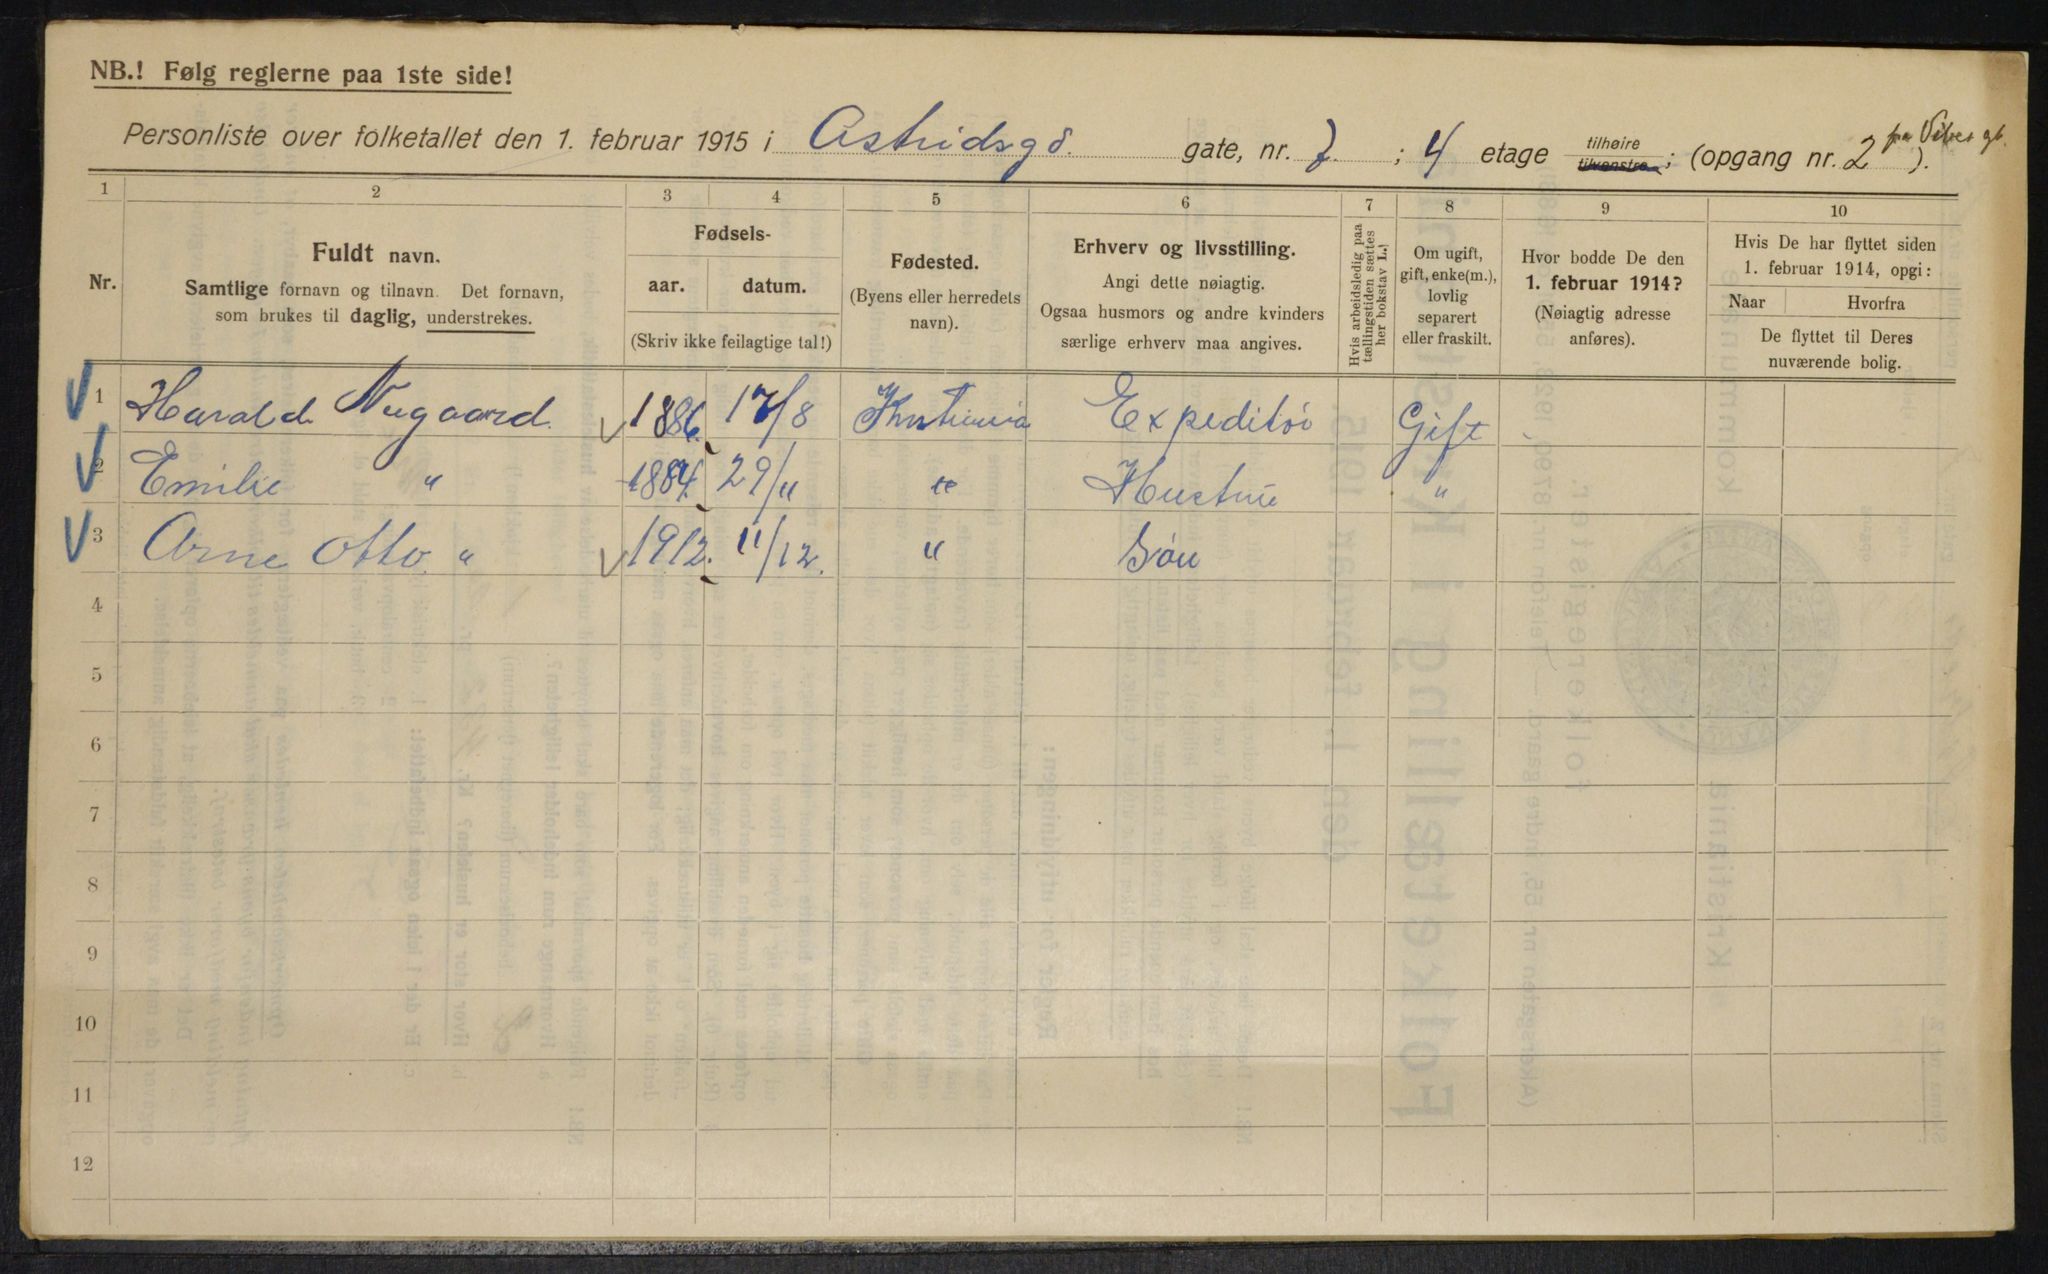 NB.! Følg reglerne paa 1ste side!
Personliste over folketallet den 1. februar 1915 i Astridsgd. gate, nr. 7 ; 4 etage tilhøire tilvenstre; (opgang nr. 2 fra Vibes gt. ).
1 2 3 4 5 6 7 8 9 10
Nr.
Fuldt navn.
Samtlige fornavn og tilnavn. Det fornavn,
som brukes til daglig, understrekes.
Fødsels-
aar. datum.
(Skriv ikke feilagtige tal!)
Fødested.
(Byens eller herredets
navn).
Erhverv og livsstilling.
Angi dette nøiagtig.
Ogsaa husmors og andre kvinders
særlige erhverv maa angives.
Hvis arbeidsledig paa
tællingstiden sættes
her bokstav L.!
Om ugift,
gift, enke(m.),
lovlig
separert
eller fraskilt.
Hvor bodde De den
1. februar 1914?
(Nøiagtig adresse
anføres).
Hvis De har flyttet siden
1. februar 1914, opgi:
Naar Hvorfra
De flyttet til Deres
nuværende bolig.
1 Harald Nygaard. 1886. 17/8 Kristiania Expeditør Gift
2 Emilie " 1884. 29/11 " Hustru "
3 Arne Otto " 1912. 11/12. " Søn
4
5
6
7
8
9
10
11
12